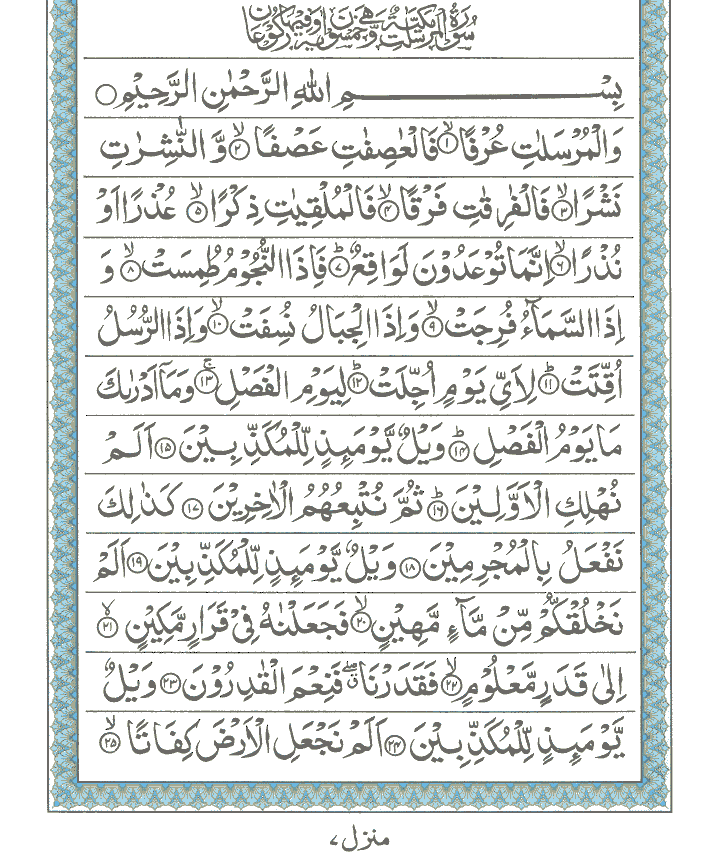 سُوْرَةُ الْمُرْسَلٰتِ مَكِّيَّةٌ وَّهِيَ خَمْسُوْنَ اٰيَةً وَّفِيْهَا رُكُوْعَانِ
بِسْمِ اللهِ الرَّحْمٰنِ الرَّحِيْمِ ○
وَالْمُرْسَلٰتِ عُرْفًا ۙ﴿۱﴾ فَالْعٰصِفٰتِ عَصْفًا ۙ﴿۲﴾ وَّ النّٰشِرٰتِ
نَشْرًا ۙ﴿۳﴾ فَالْفٰرِقٰتِ فَرْقًا ۙ﴿۴﴾ فَالْمُلْقِيٰتِ ذِكْرًا ۙ﴿۵﴾ عُذْرًا اَوْ
نُذْرًا ۙ﴿۶﴾ اِنَّمَا تُوْعَدُوْنَ لَوَاقِعٌ ؕ﴿۷﴾ فَاِذَا النُّجُوْمُ طُمِسَتْ ۙ﴿۸﴾ وَ
اِذَا السَّمَآءُ فُرِجَتْ ۙ﴿۹﴾ وَاِذَا الْجِبَالُ نُسِفَتْ ۙ﴿۱۰﴾ وَاِذَا الرُّسُلُ
اُقِّتَتْ ؕ﴿۱۱﴾ لِاَيِّ يَوْمٍ اُجِّلَتْ ؕ﴿۱۲﴾ لِيَوْمِ الْفَصْلِ ۚ﴿۱۳﴾ وَمَاۤ اَدْرٰىكَ
مَا يَوْمُ الْفَصْلِ ؕ﴿۱۴﴾ وَيْلٌ يَّوْمَئِذٍ لِّلْمُكَذِّبِيْنَ ﴿۱۵﴾ اَلَمْ
نُهْلِكِ الْاَوَّلِيْنَ ؕ﴿۱۶﴾ ثُمَّ نُتْبِعُهُمُ الْاٰخِرِيْنَ ﴿۱۷﴾ كَذٰلِكَ
نَفْعَلُ بِالْمُجْرِمِيْنَ ﴿۱۸﴾ وَيْلٌ يَّوْمَئِذٍ لِّلْمُكَذِّبِيْنَ ﴿۱۹﴾ اَلَمْ
نَخْلُقْكُّمْ مِّنْ مَّآءٍ مَّهِيْنٍ ۙ﴿۲۰﴾ فَجَعَلْنٰهُ فِيْ قَرَارٍ مَّكِيْنٍ ۙ﴿۲۱﴾
اِلٰى قَدَرٍ مَّعْلُوْمٍ ۙ﴿۲۲﴾ فَقَدَرْنَا ۖۗ فَنِعْمَ الْقٰدِرُوْنَ ﴿۲۳﴾ وَيْلٌ
يَّوْمَئِذٍ لِّلْمُكَذِّبِيْنَ ﴿۲۴﴾ اَلَمْ نَجْعَلِ الْاَرْضَ كِفَاتًا ۙ﴿۲۵﴾
منزل ۷